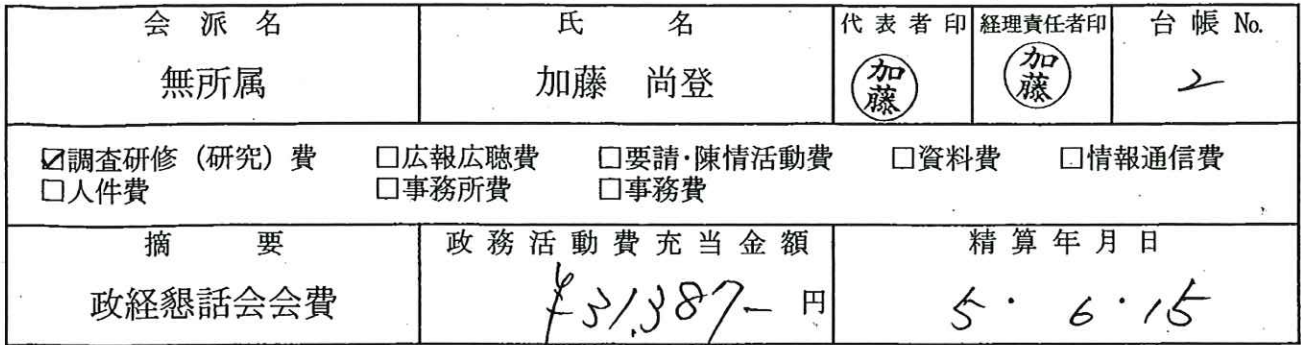 会派名 氏名 代表者印 経理責任者印 台帳No.
無所属 加藤 尚登 加藤 加藤 2
☑調査研修（研究）費 □広報広聴費 □要請・陳情活動費 □資料費 □情報通信費
□人件費 □事務所費 □事務費
摘要 政務活動費充当金額 精算年月日
政経懇話会会費 ¥31,387- 円 5・6・15